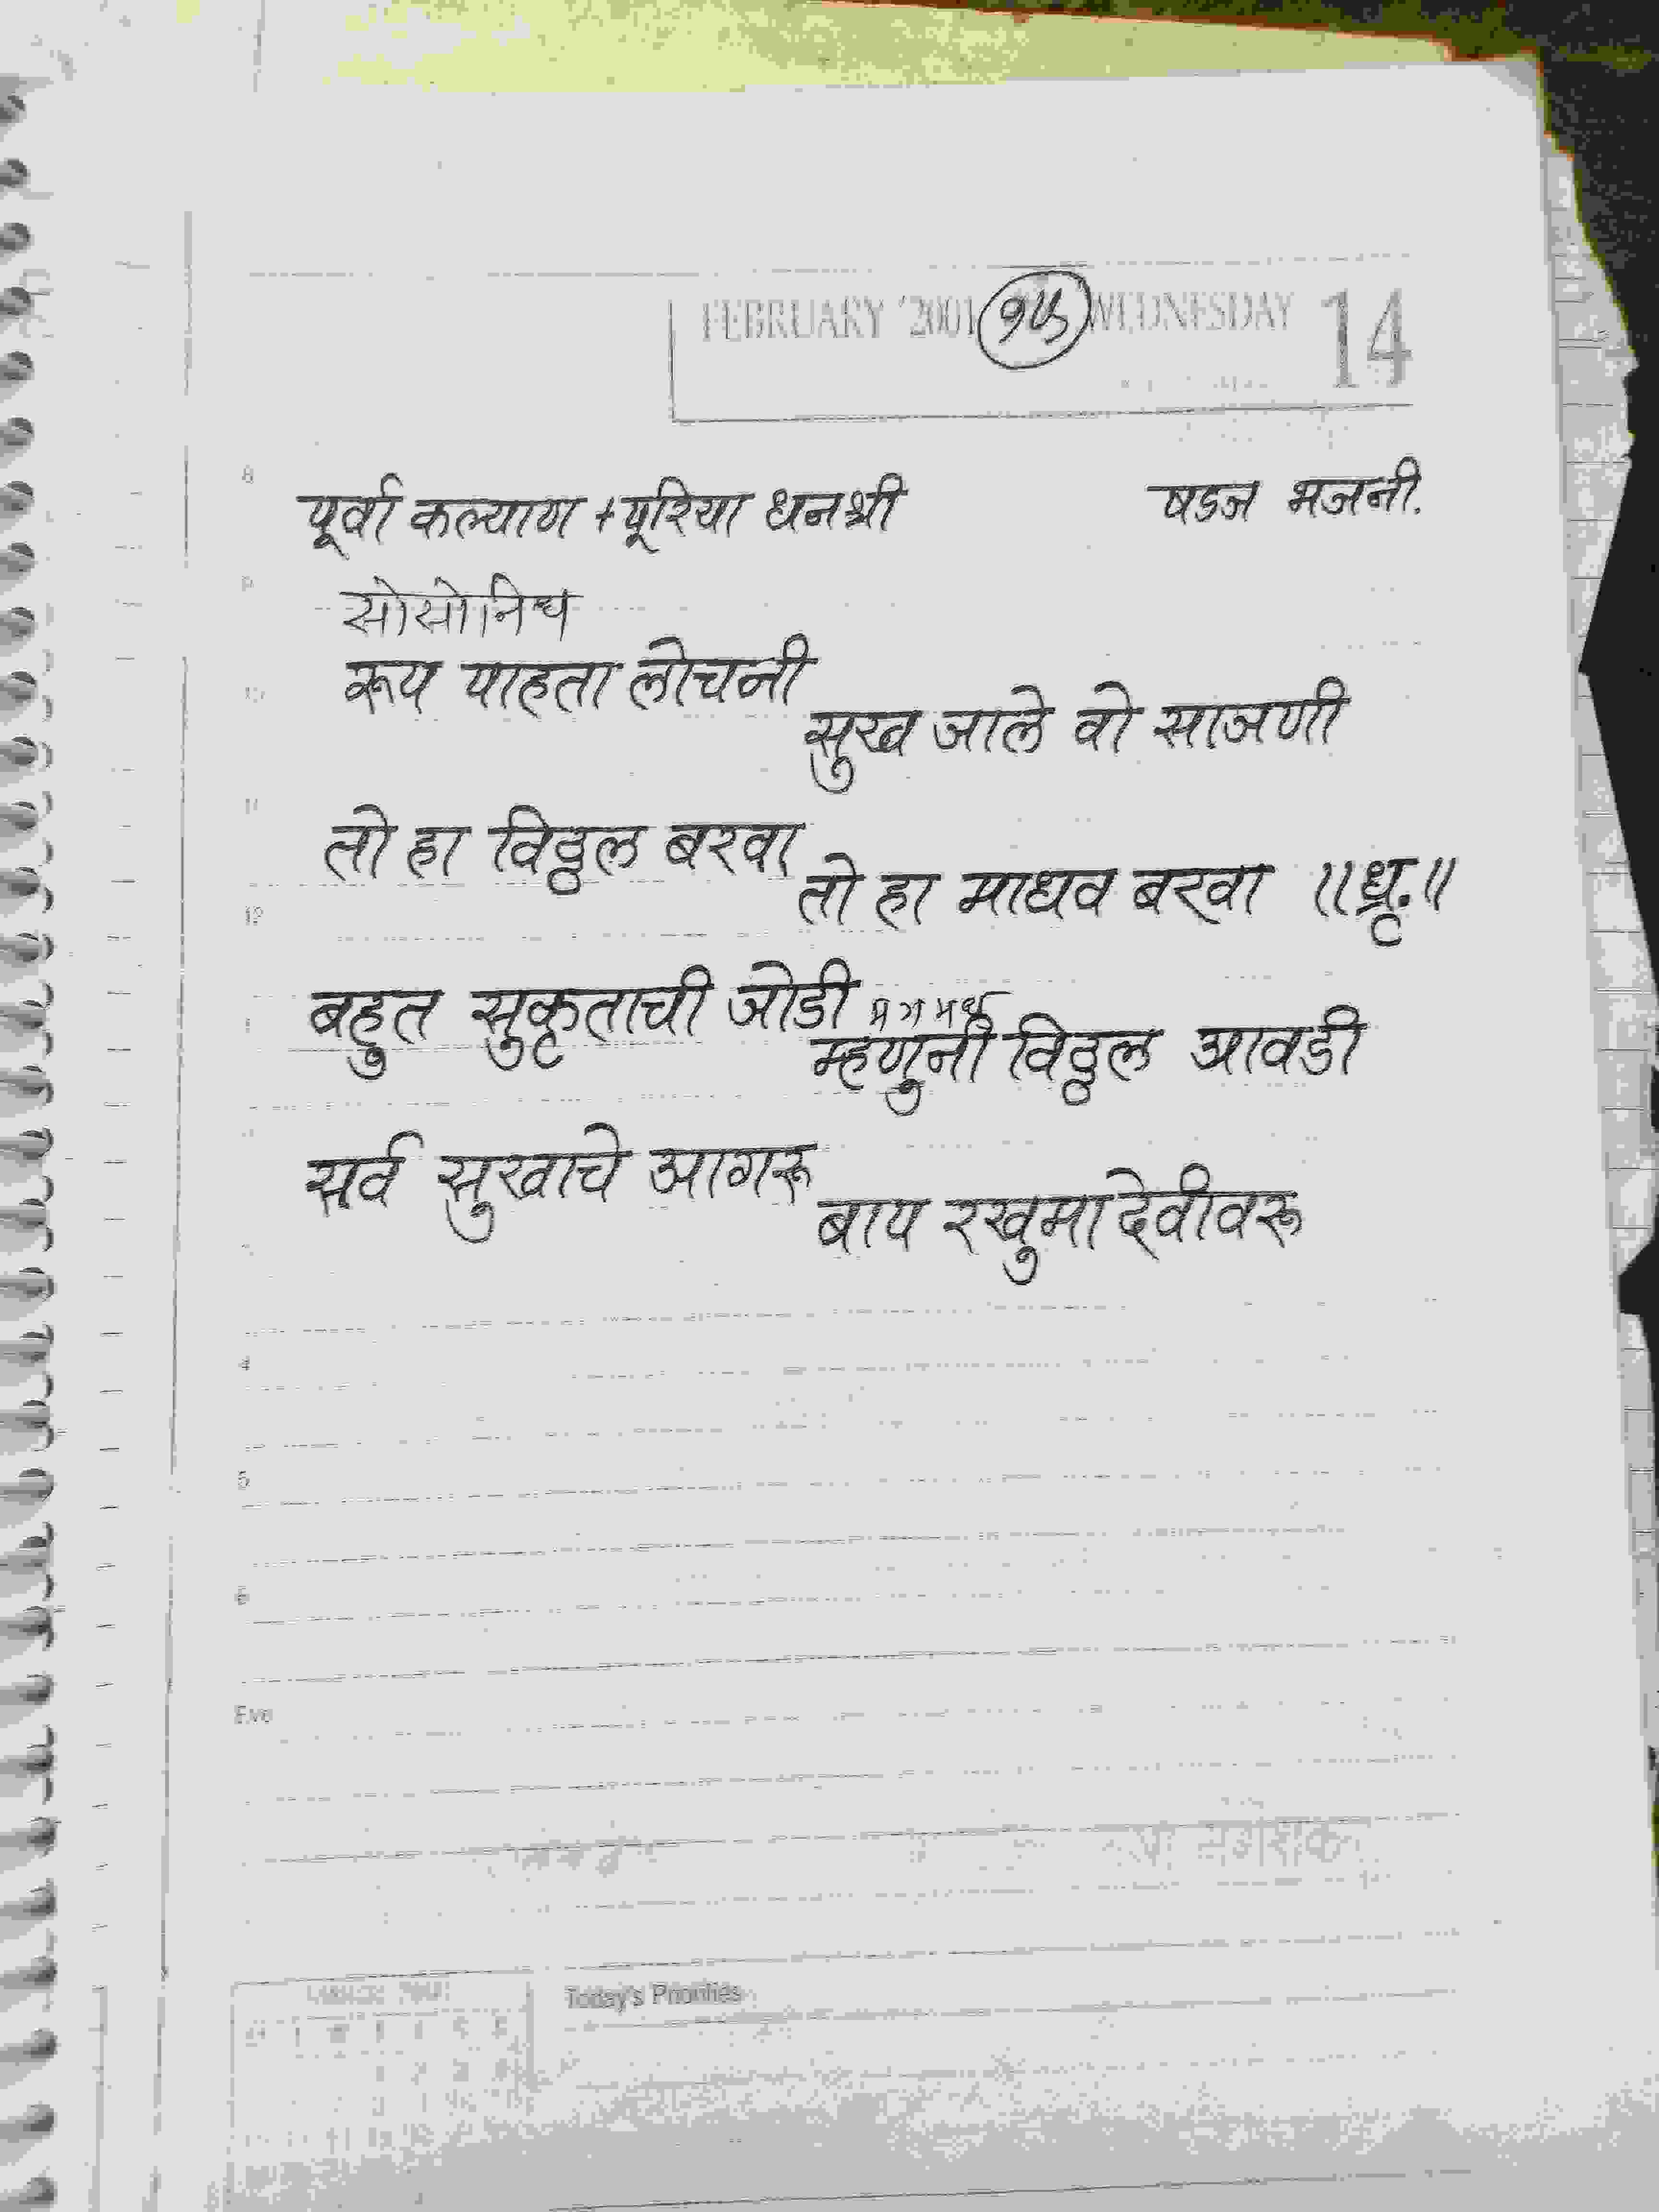 FEBRUARY '2001 १५ WEDNESDAY 14
8 पूर्वा कल्याण + पूरिया धनश्री षडज भजनी.
9 सोसोनिध
10 रूप पाहता लोचनी
सुख जाले वो साजणी
11 तो हा विठ्ठल बरवा
तो हा माधव बरवा ॥धृ.॥
12
बहुत सुकृताची जोडी
म्हणुनी विठ्ठल आवडी
सर्व सुखाचे आगरू
बाप रखुमादेवीवरू
4
5
6
Eve
Today's Priorities